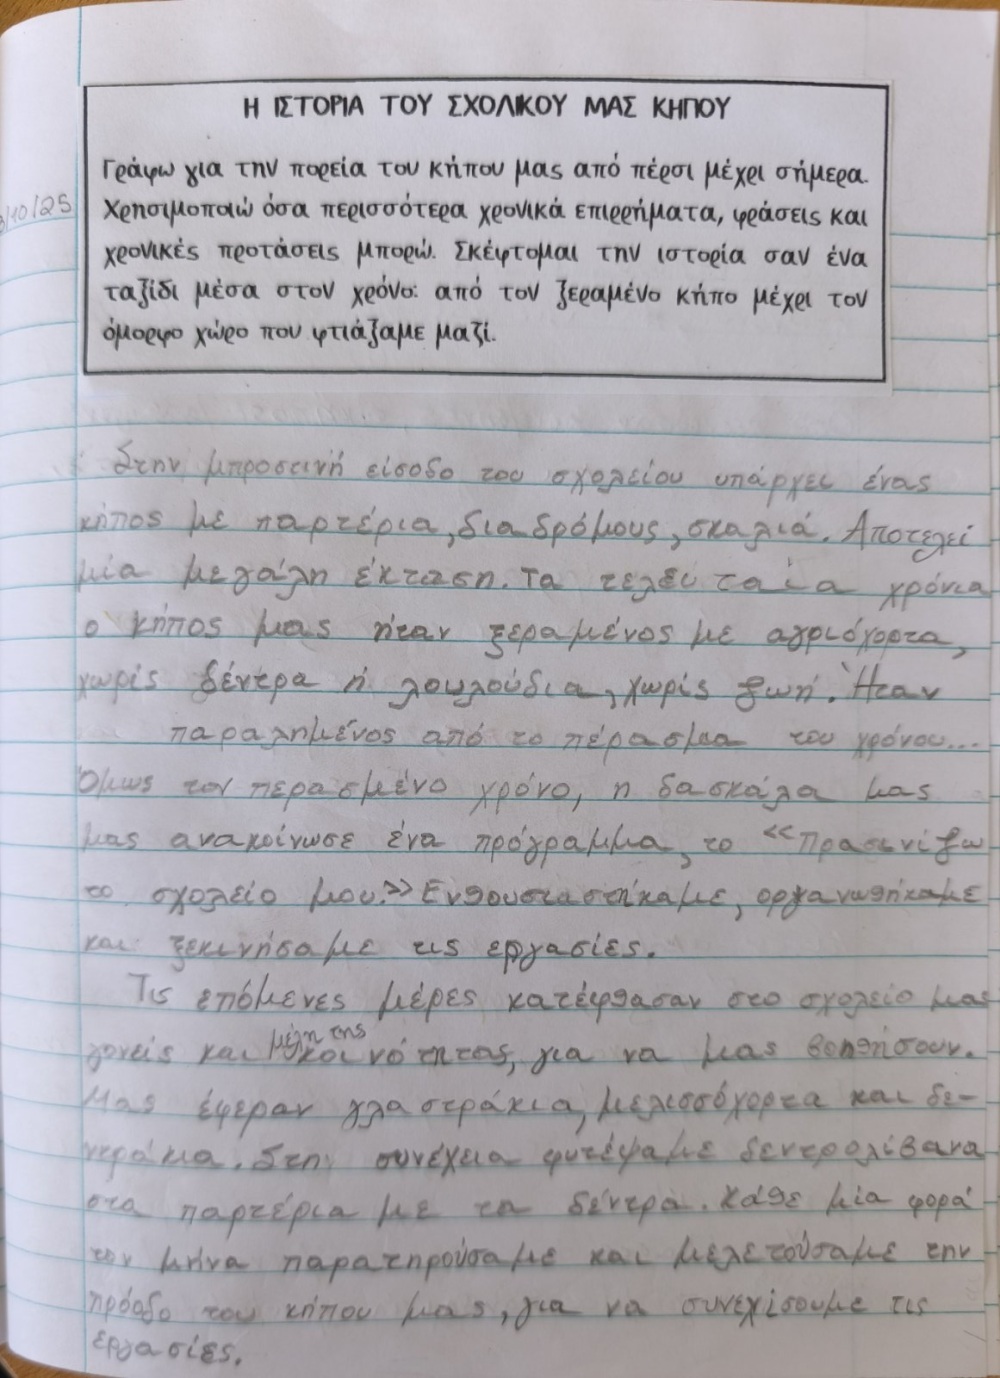 Η ΙΣΤΟΡΙΑ ΤΟΥ ΣΧΟΛΙΚΟΥ ΜΑΣ ΚΗΠΟΥ
Γράφω για την πορεία του κήπου μας από πέρσι μέχρι σήμερα.
Χρησιμοποιώ όσα περισσότερα χρονικά επιρρήματα, φράσεις και
χρονικές προτάσεις μπορώ. Σκέφτομαι την ιστορία σαν ένα
ταξίδι μέσα στον χρόνο: από τον ξεραμένο κήπο μέχρι τον
όμορφο χώρο που φτιάξαμε μαζί.
/10/25
Στην μπροστινή είσοδο του σχολείου υπάρχει ένας
κήπος με παρτέρια, διαδρόμους, σκαλιά. Αποτελεί
μία μεγάλη έκταση. Τα τελευταία χρόνια
ο κήπος μας ήταν ξεραμένος με αγριόχορτα,
χωρίς δέντρα ή λουλούδια, χωρίς ζωή. Ήταν
παραλημένος από το πέρασμα του χρόνου...
Όμως τον περασμένο χρόνο, η δασκάλα μας
μας ανακοίνωσε ένα πρόγραμμα, το «Πρασινίζω
το σχολείο μου.» Ενθουσιαστήκαμε, οργανωθήκαμε
και ξεκινήσαμε τις εργασίες.
Τις επόμενες μέρες κατέφθασαν στο σχολείο μας
γονείς και μέλη της κοινότητας, για να μας βοηθήσουν.
Μας έφεραν γλαστράκια, μελισσόχορτα και δε-
ντράκια. Στην συνέχεια φυτέψαμε δεντρολίβανα
στα παρτέρια με τα δέντρα. Κάθε μία φορά
τον μήνα παρατηρούσαμε και μελετούσαμε την
πρόοδο του κήπου μας, για να συνεχίσουμε τις
εργασίες.